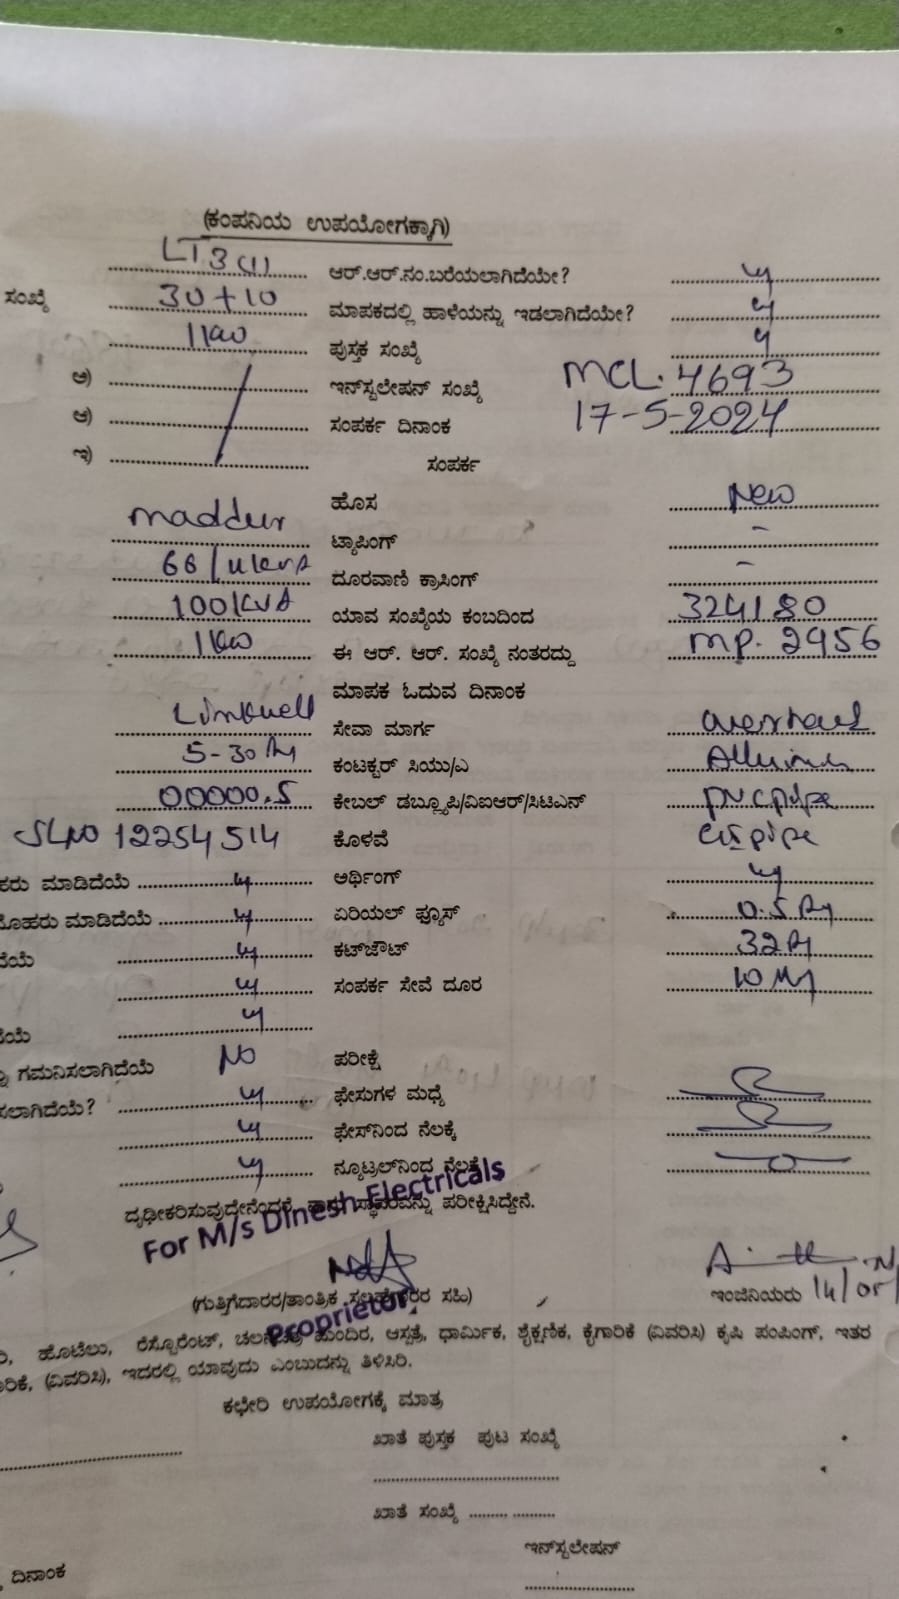 (ಕಂಪನಿಯ ಉಪಯೋಗಕ್ಕಾಗಿ)
LT3(1) ಆರ್.ಆರ್.ನಂ.ಬರೆಯಲಾಗಿದೆಯೇ?
ಸಂಖ್ಯೆ 30+10 ಮಾಪಕದಲ್ಲಿ ಹಾಳೆಯನ್ನು ಇಡಲಾಗಿದೆಯೇ?
1kw ಪುಸ್ತಕ ಸಂಖ್ಯೆ
ಅ) ಇನ್‌ಸ್ಟಲೇಷನ್ ಸಂಖ್ಯೆ MCL. 4693
ಆ) ಸಂಪರ್ಕ ದಿನಾಂಕ 17-5-2024
ಇ) ಸಂಪರ್ಕ
ಹೊಸ New
maddur ಟ್ಯಾಪಿಂಗ್ -
66/ ದೂರವಾಣಿ ಕ್ರಾಸಿಂಗ್ -
100KVA ಯಾವ ಸಂಖ್ಯೆಯ ಕಂಬದಿಂದ 324180
1kw ಈ ಆರ್. ಆರ್. ಸಂಖ್ಯೆ ನಂತರದ್ದು MP. 2956
ಮಾಪಕ ಓದುವ ದಿನಾಂಕ
Linkwell ಸೇವಾ ಮಾರ್ಗ
5-30 ಕಂಟಕ್ಟರ್ ಸಿಯು/ಎ
00000.5 ಕೇಬಲ್ ಡಬ್ಲ್ಯೂಪಿ/ವಿಐಆರ್/ಸಿಟಿಎನ್ pvc pipe
SLNO 12254514 ಕೊಳವೆ
ಹರು ಮಾಡಿದೆಯೆ ಅರ್ಥಿಂಗ್
ಮೊಹರು ಮಾಡಿದೆಯೆ ಏರಿಯಲ್ ಫ್ಯೂಸ್ 0.5
ದೆಯೆ ಕಟ್‌ಜೌಟ್ 32
ಸಂಪರ್ಕ ಸೇವೆ ದೂರ 10
ದೆಯೆ
ಗಮನಿಸಲಾಗಿದೆಯೆ NO ಪರೀಕ್ಷೆ
ಸಲಾಗಿದೆಯೆ? ಫೇಸುಗಳ ಮಧ್ಯೆ
ಫೇಸ್‌ನಿಂದ ನೆಲಕ್ಕೆ
ನ್ಯೂಟ್ರಲ್‌ನಿಂದ ನೆಲಕ್ಕೆ
ದೃಢೀಕರಿಸುವುದೇನೆಂದರೆ, ಸ್ಥಾವರವನ್ನು ಪರೀಕ್ಷಿಸಿದ್ದೇನೆ.
For M/s Dinesh Electricals
(ಗುತ್ತಿಗೆದಾರರ/ತಾಂತ್ರಿಕ ಸಲಹೆಗಾರರ ಸಹಿ) ಇಂಜಿನಿಯರು 14/05/
Proprietor
ಹೊಟೆಲು, ರೆಸ್ಟೊರೆಂಟ್, ಚಲನಚಿತ್ರ ಮಂದಿರ, ಆಸ್ಪತ್ರೆ, ಧಾರ್ಮಿಕ, ಶೈಕ್ಷಣಿಕ, ಕೈಗಾರಿಕೆ (ವಿವರಿಸಿ) ಕೃಷಿ ಪಂಪಿಂಗ್, ಇತರ
ಾರಿಕೆ, (ವಿವರಿಸಿ), ಇದರಲ್ಲಿ ಯಾವುದು ಎಂಬುದನ್ನು ತಿಳಿಸಿರಿ.
ಕಛೇರಿ ಉಪಯೋಗಕ್ಕೆ ಮಾತ್ರ
ಖಾತೆ ಪುಸ್ತಕ ಪುಟ ಸಂಖ್ಯೆ
ಖಾತೆ ಸಂಖ್ಯೆ
ಇನ್‌ಸ್ಟಲೇಷನ್
ದಿನಾಂಕ